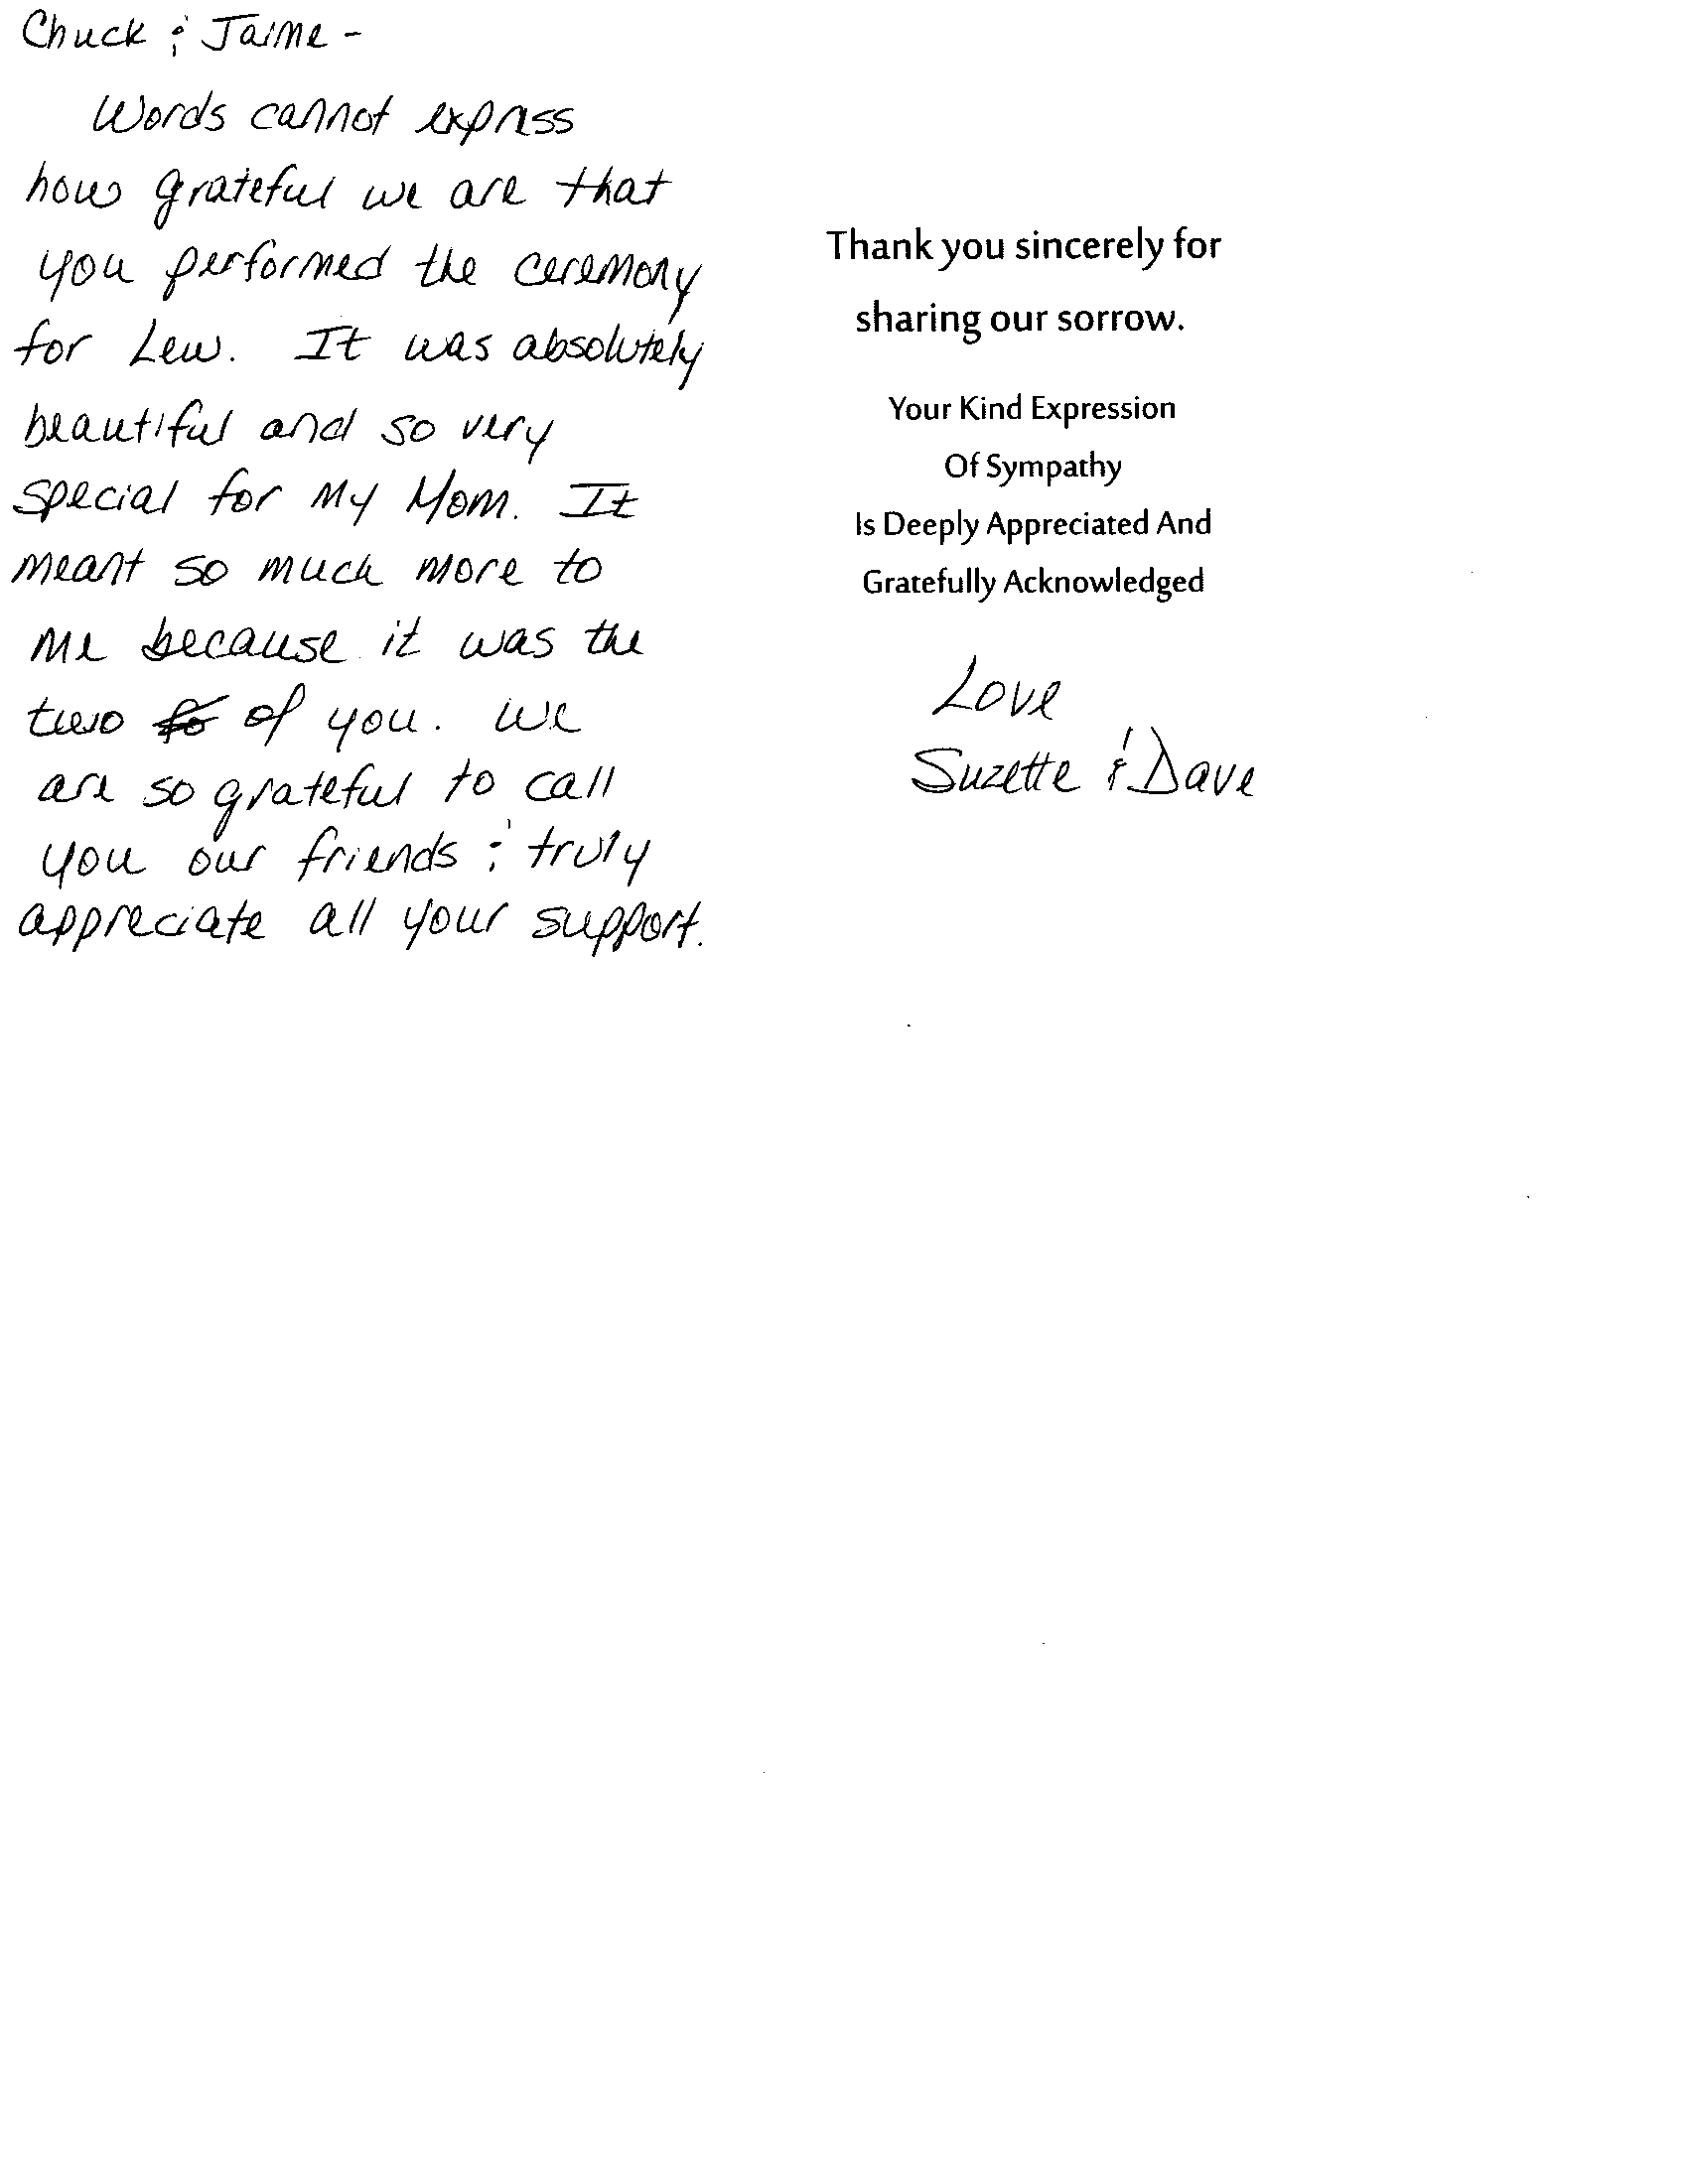 Chuck & Jaime -
Words cannot express
how grateful we are that
you performed the ceremony
for Lew. It was absolutely
beautiful and so very
special for my Mom. It
meant so much more to
me because it was the
two fo of you. We
are so grateful to call
you our friends & truly
appreciate all your support.
Thank you sincerely for
sharing our sorrow.
Your Kind Expression
Of Sympathy
Is Deeply Appreciated And
Gratefully Acknowledged
Love
Suzette & Dave